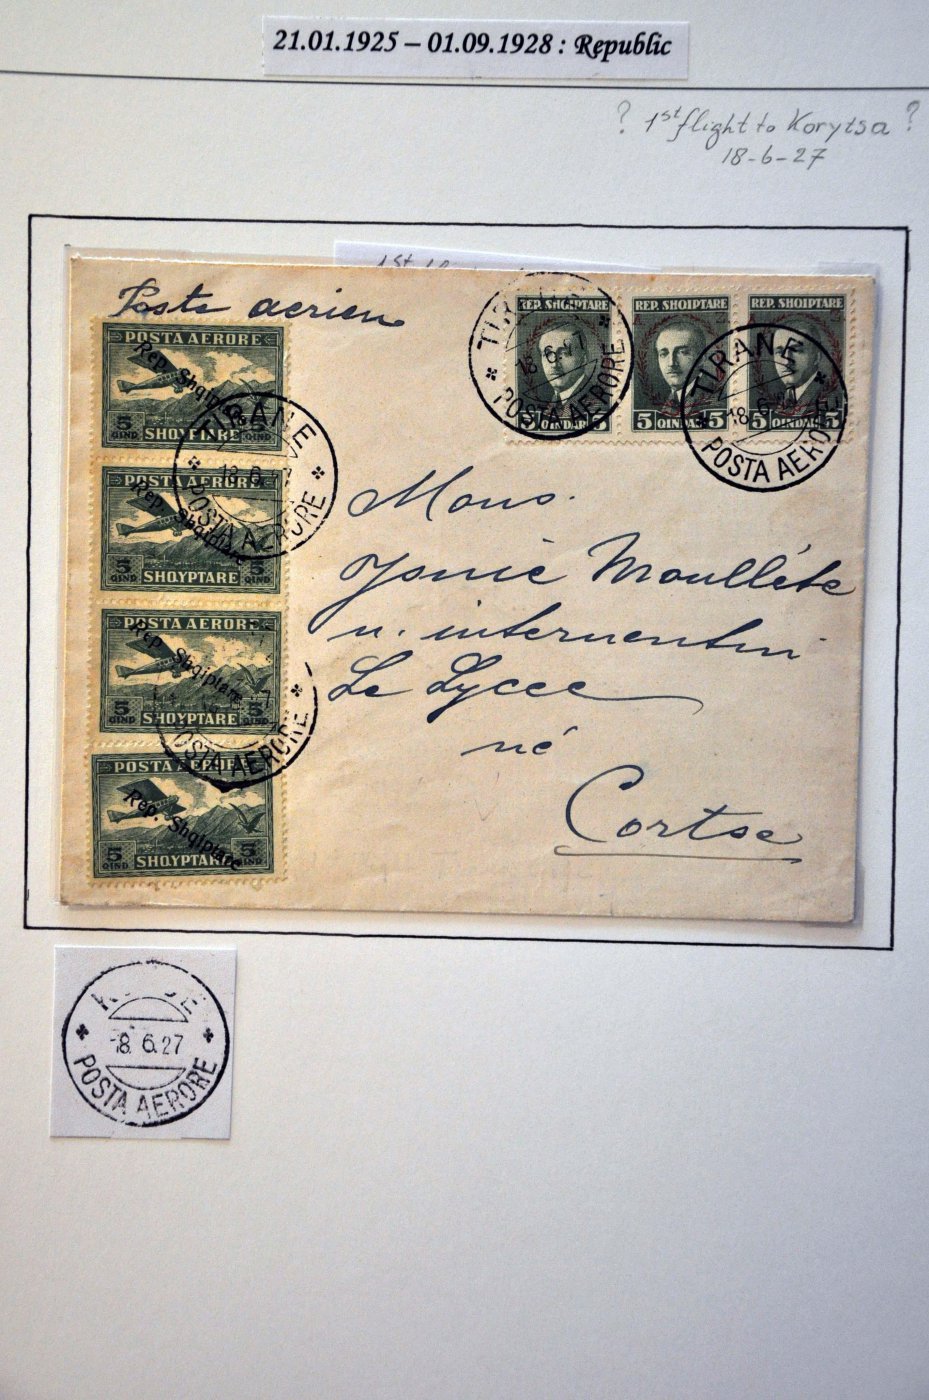 21.01.1925 – 01.09.1928 : Republic
? 1st flight to Korytsa ?
18-6-27
1st
Poste aerien
REP. SHQIPTARE
5 QINDAR 5
REP. SHQIPTARE
5 QINDAR 5
REP. SHQIPTARE
5 5
TIRANE
18.6.27
POSTA AERORE
TIRANE
18.6
POSTA AERORE
POSTA AERORE
Rep. Shqiptare
5 QIND
SHQYPTARE
5 QIND
TIRANE
18.6.27
POSTA AERORE
POSTA AERORE
Rep. Shqiptare
5 QIND
SHQYPTARE
5
POSTA AERORE
Rep. Shqiptare
5 QIND
SHQYPTARE
5 QIND
POSTA AERORE
POSTA AERORE
Rep. Shqiptare
5 QIND
SHQYPTARE
5 QIND
Mons.
Moulléte
n. internentin
Le Lycee
né
Cortse
8.6.27
POSTA AERORE